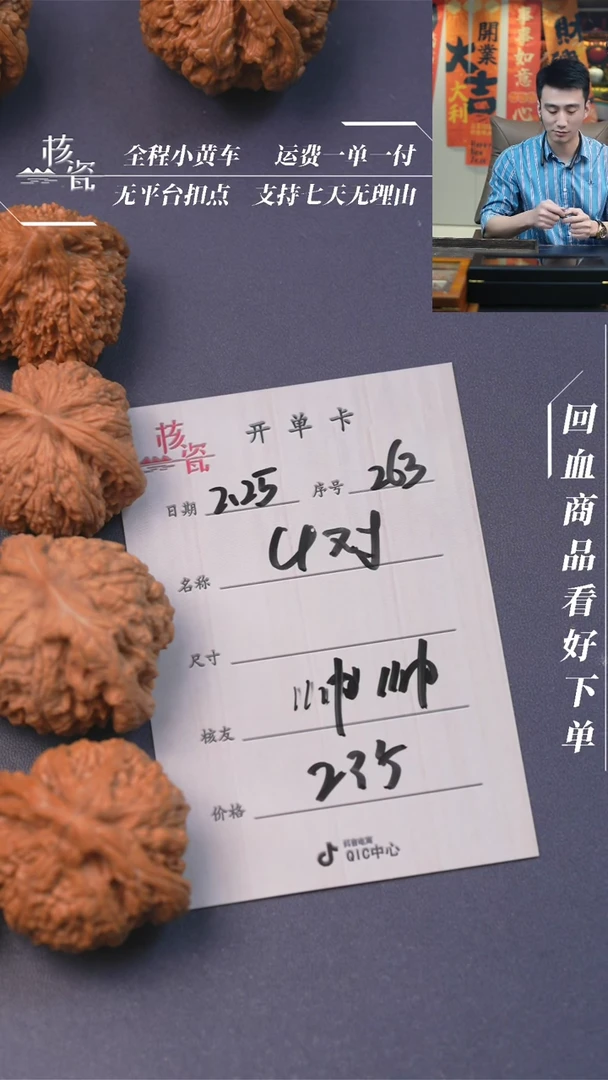 核瓷
全程小黄车 运费一单一付
无平台扣点 支持七天无理由
開業
大吉
大利
事事如意
心
財
回血商品看好下单
核瓷
开单卡
日期 2.25 序号 263
名称 U对
尺寸
核友 帅帅
价格 235
抖音电商
QIC中心